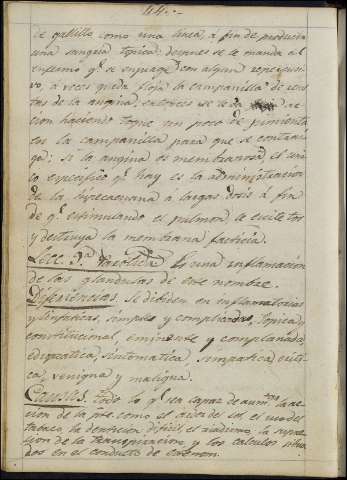 44.-
de gatillo como una linea, á fin de producir
una sangria topica; despues se le manda al
enfermo q.e se enjuage con algun repercusi-
vo, á veces queda floja la campanilla de resu-
tas de la angina, entonces se le da
cion haciendo topie un poco de pimienta
los la campanilla para que se contrai-
ga: si la angina es membranosa, el uni-
co especifico q.e hay es la administracion
de la hipecacuana á largas dosis á fin
de q.e estimulando el pulmon le exite tos
y destruya la membrana facticia.
Lecc. 3.a Parotida Es una inflamacion
de las glandulas de este nombre.
Diferencias. Se dibiden en inflamatorias
y linfaticas, simples y complicadas, topica y
constitucional, eminente y complanada,
ediopatica, sintomatica, simpatica criti-
ca, venigna y maligna.
Causas. todo lo q.e sea capaz de aum.tar la ac-
cion de la p.te como el ardor del sol, el uso del
tabaco, la denticion dificil, el tialismo, la supre-
sion de la transpiracion, y los calculos situa-
dos en el conducto de estenon.